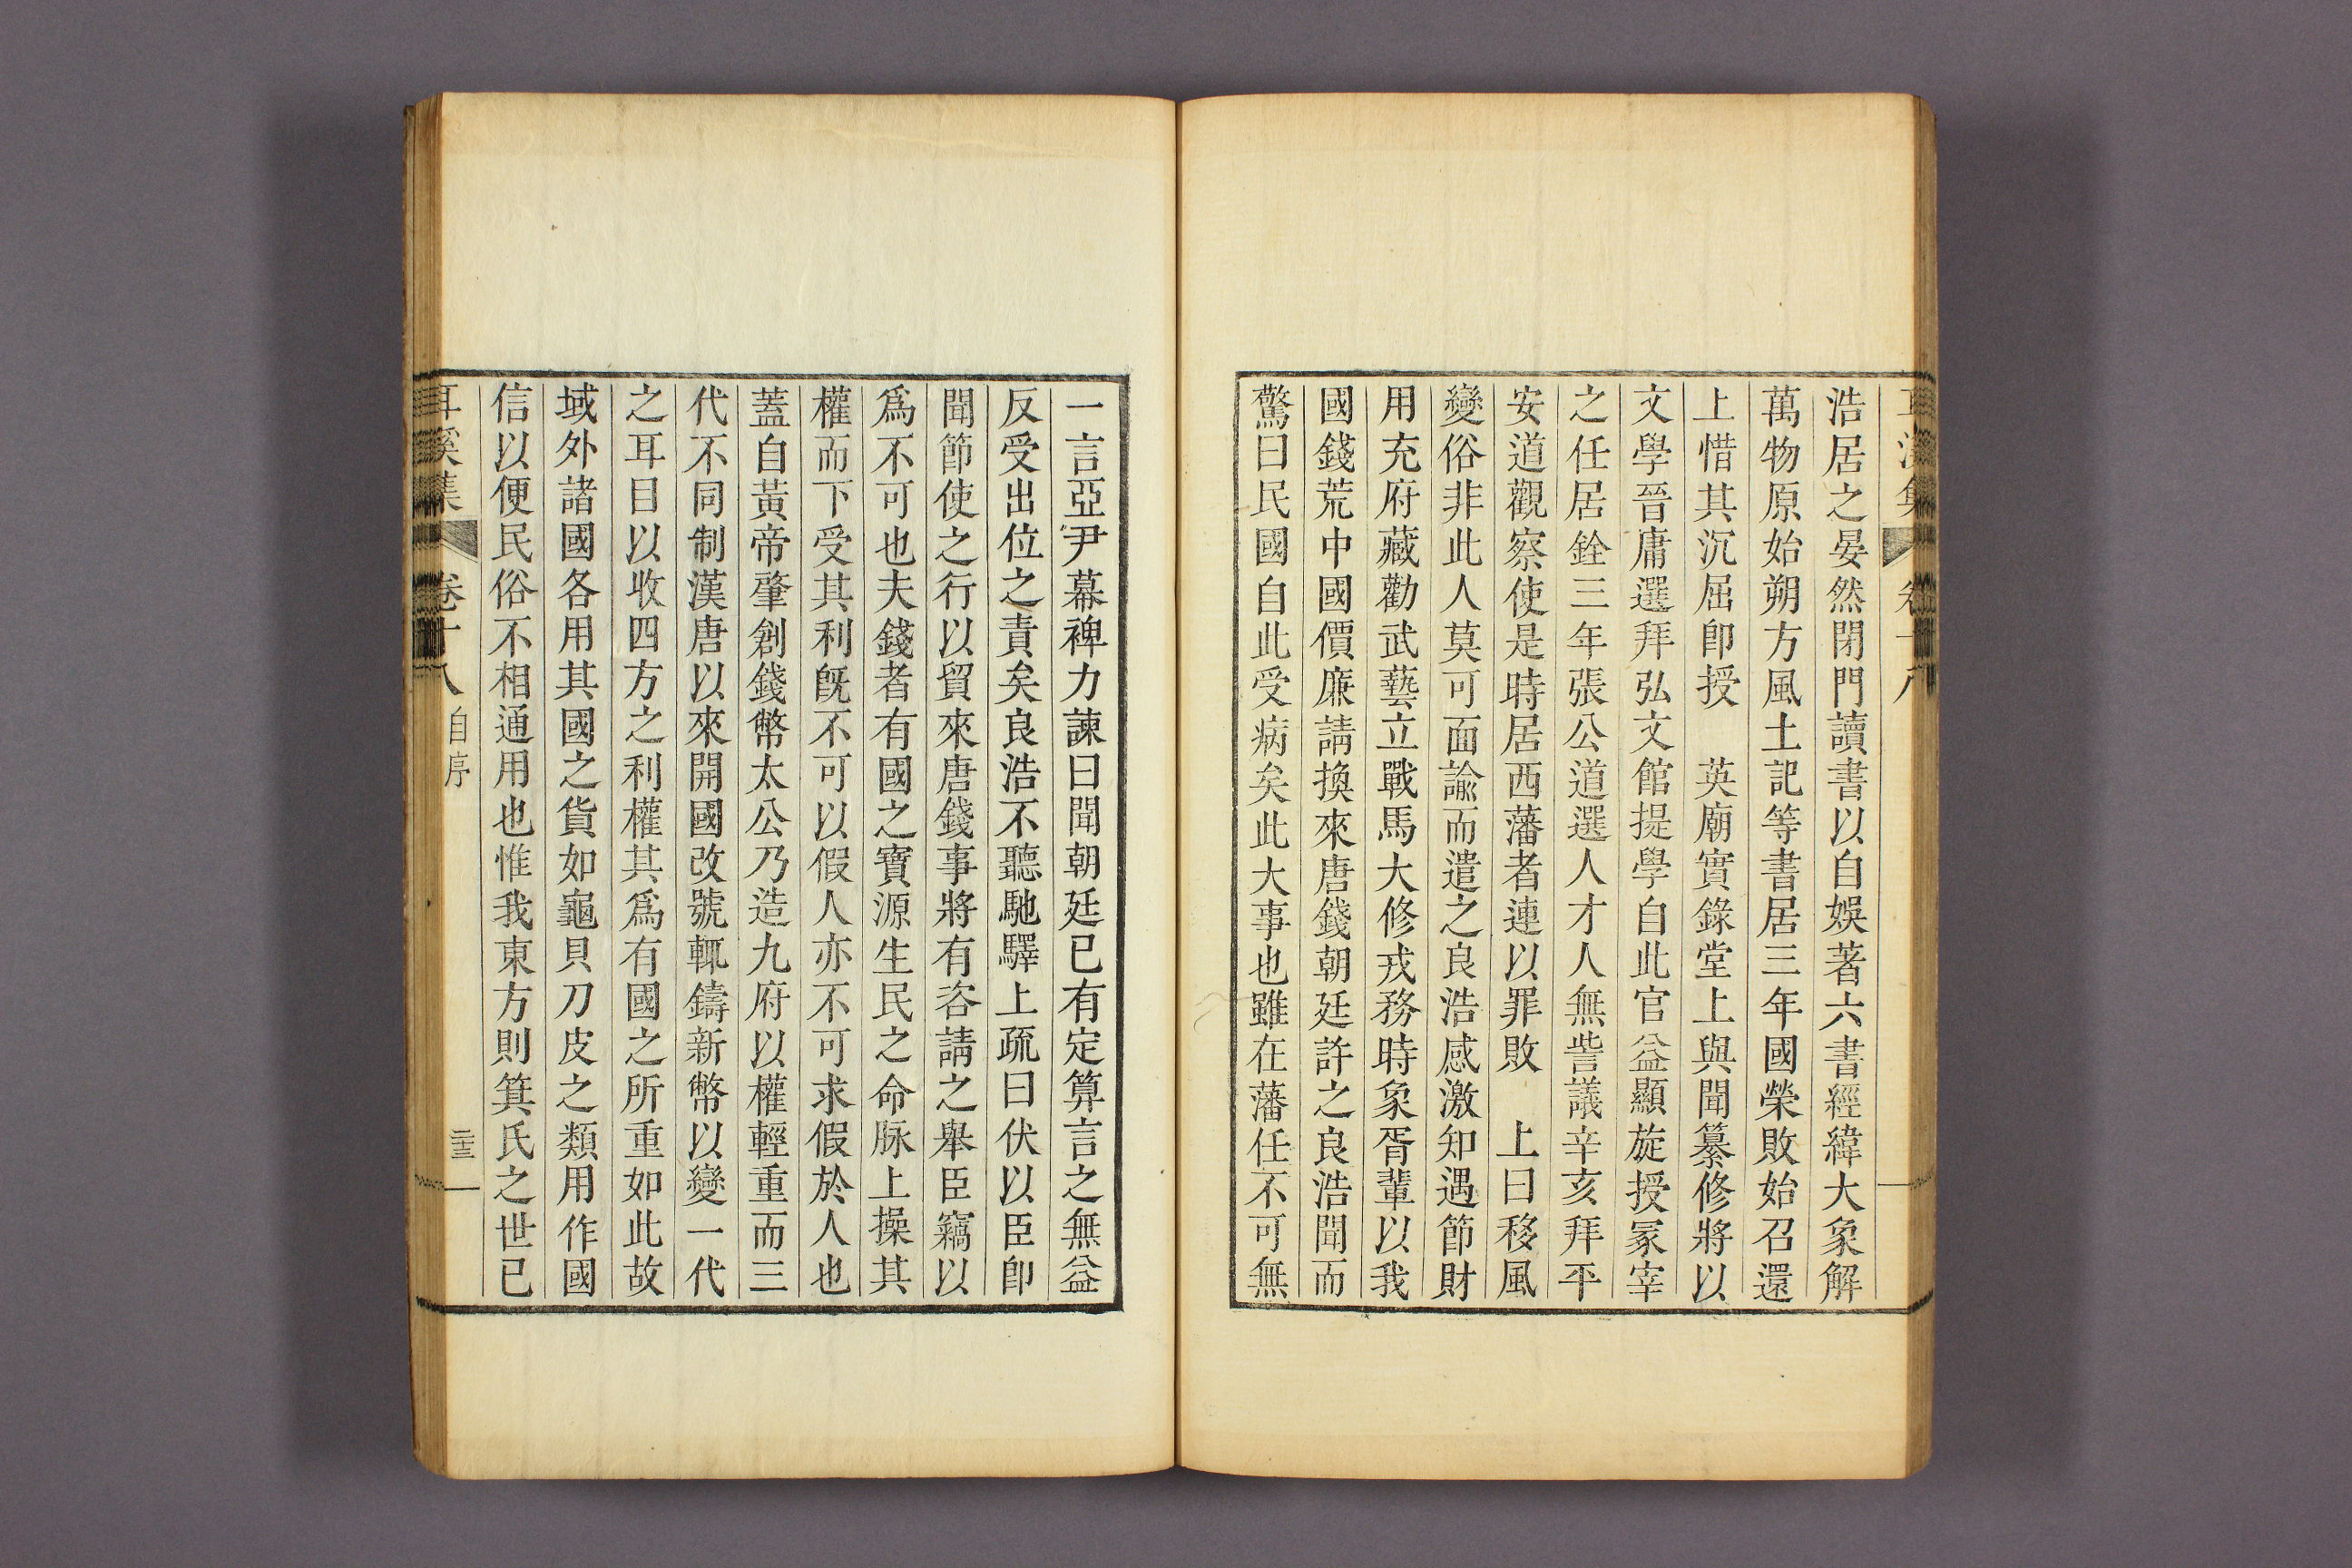 耳溪集 卷十八
浩居之晏然閉門讀書以自娛著六書經緯大象解
萬物原始朔方風土記等書居三年國榮敗始召還
上惜其沉屈卽授 英廟實錄堂上與聞纂修將以
文學晉庸選拜弘文館提學自此官益顯旋授冢宰
之任居銓三年張公道選人才人無訾議辛亥拜平
安道觀察使是時居西藩者連以罪敗 上曰移風
變俗非此人莫可面諭而遣之良浩感激知遇節財
用充府藏勸武藝立戰馬大修戎務時象胥輩以我
國錢荒中國價廉請換來唐錢朝廷許之良浩聞而
驚曰民國自此受病矣此大事也雖在藩任不可無
一言亞尹幕裨力諫曰聞朝廷已有定算言之無益
反受出位之責矣良浩不聽馳驛上疏曰伏以臣卽
聞節使之行以貿來唐錢事將有咨請之舉臣竊以
爲不可也夫錢者有國之寶源生民之命脉上操其
權而下受其利旣不可以假人亦不可求假於人也
蓋自黃帝肇創錢幣太公乃造九府以權輕重而三
代不同制漢唐以來開國改號輒鑄新幣以變一代
之耳目以收四方之利權其爲有國之所重如此故
域外諸國各用其國之貨如龜貝刀皮之類用作國
信以便民俗不相通用也惟我東方則箕氏之世已
耳溪集 卷十八 自序 二十三